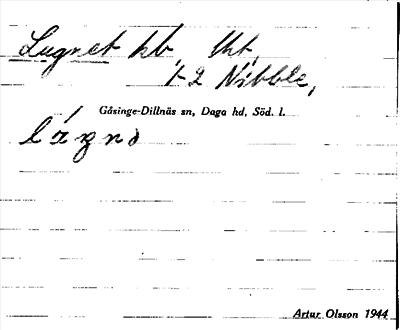 Lugnet hb, lht,
1-2 Nibble,
Gåsinge-Dillnäs sn, Daga hd, Söd. l.
Artur Olsson 1944